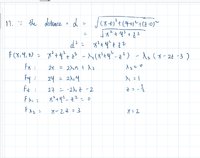 37. ∵ the distance = d = √((x-0)²+(y-0)²+(z-0)²)
= √(x²+y²+z²)
d² = x²+y²+z²
F(x,y,z) = x²+y²+z² - λ₁(x²+y²-z²) - λ₂(x-2z-3)
Fx : 2x = 2λ₁x + λ₂ λ₂ = 0
Fy : 2y = 2λ₁y λ₁ = 1
Fz : 2z = -2λ₁z - 2
Fλ₁ : x²+y²-z² = 0
Fλ₂ : x-2z = 3 x = 2